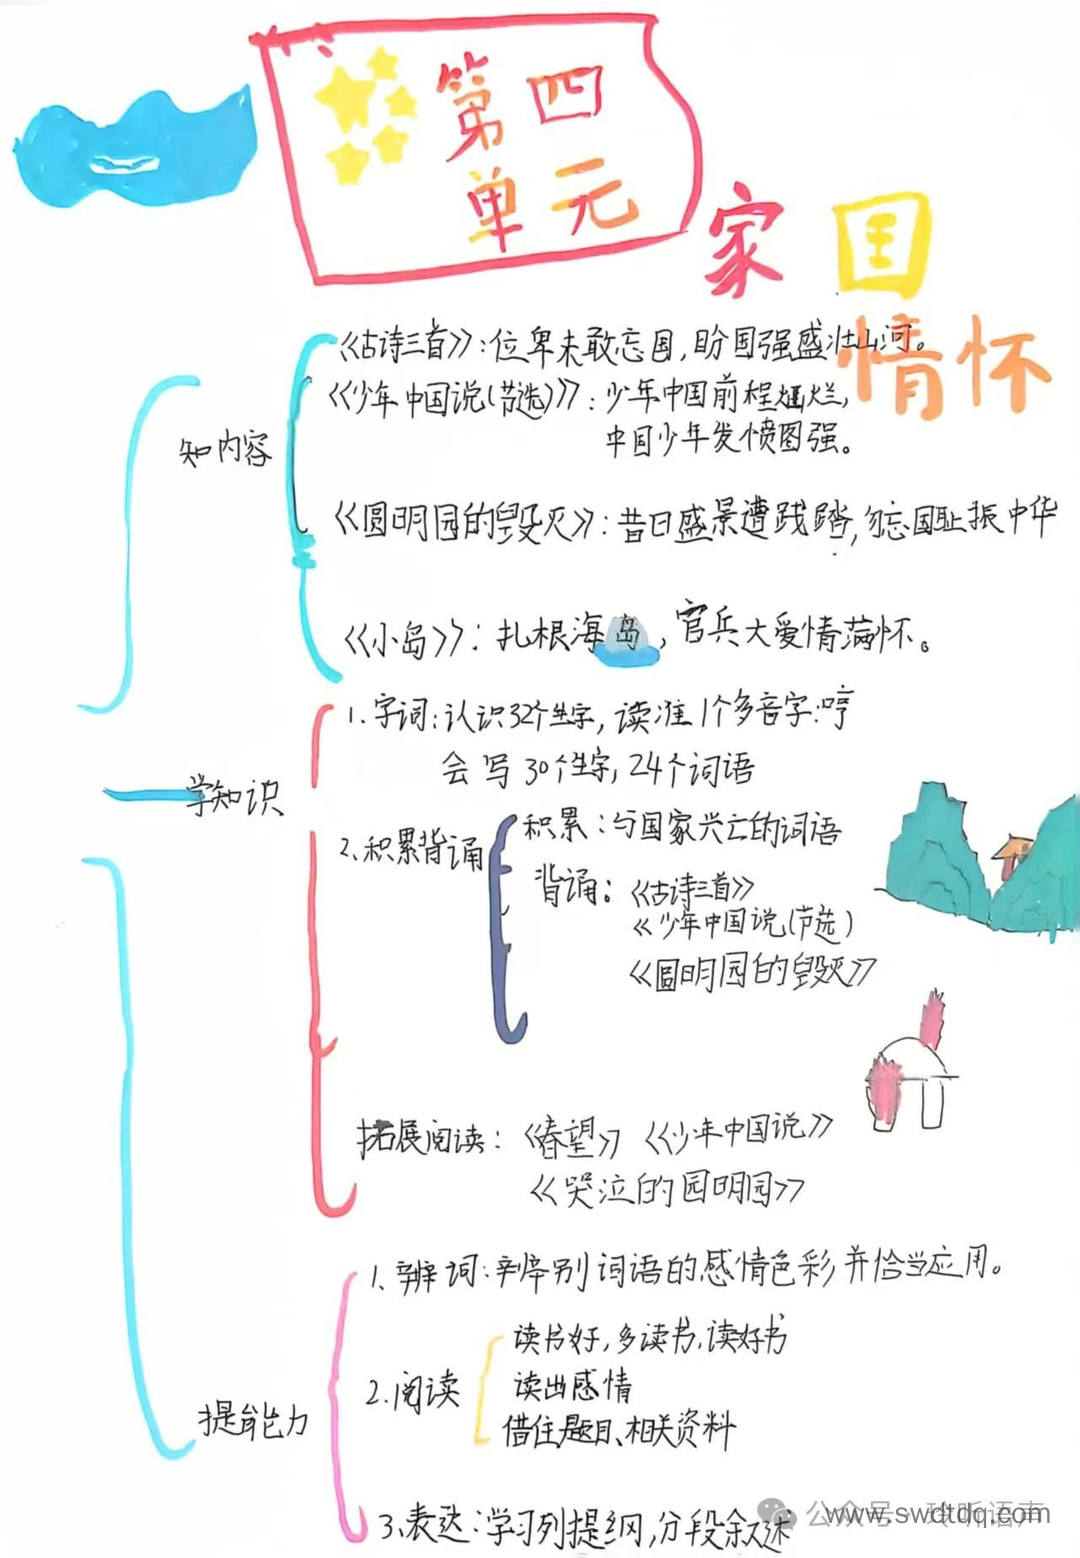 第四
单元
家国
情怀
知内容
《古诗三首》：位卑未敢忘国，盼国强盛壮山河。
《少年中国说(节选)》：少年中国前程灿烂，
中国少年发愤图强。
《圆明园的毁灭》：昔日盛景遭践踏，勿忘国耻振中华
《小岛》：扎根海岛，官兵大爱情满怀。
学知识
1.字词：认识32个生字，读准1个多音字：哼
会写30个生字，24个词语
2.积累背诵
积累：与国家兴亡的词语
背诵：《古诗三首》
《少年中国说(节选)
《圆明园的毁灭》
拓展阅读：《春望》《少年中国说》
《哭泣的园明园》
提能力
1.辨词：辨别词语的感情色彩并恰当应用。
2.阅读
读书好，多读书，读好书
读出感情
借住题目、相关资料
3.表达：学习列提纲，分段叙述
公众号
www.swdtdq.com